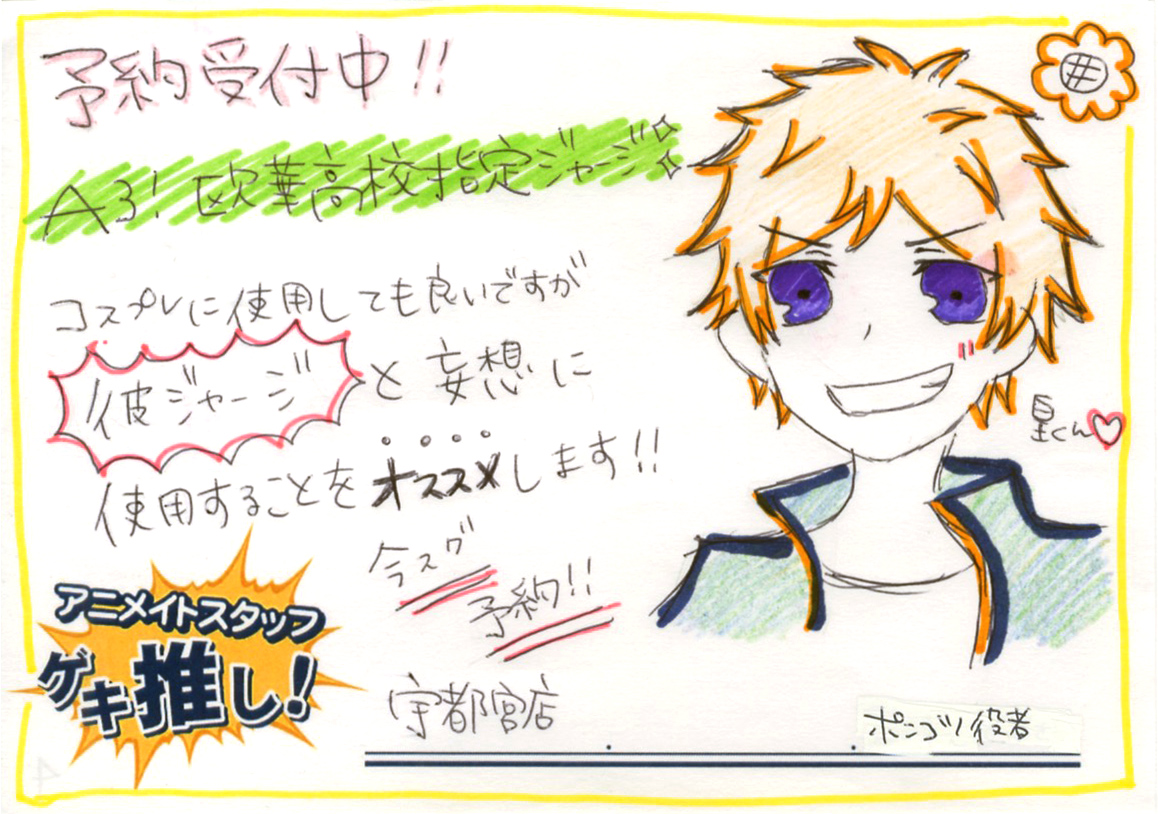 予約受付中!!
A3! 欧華高校指定ジャージ
コスプレに使用しても良いですが
彼ジャージと妄想に
使用することをオススメします!!
今スグ
予約!!
星くん
アニメイトスタッフ
ゲキ推し!
宇都宮店
ポンコツ役者